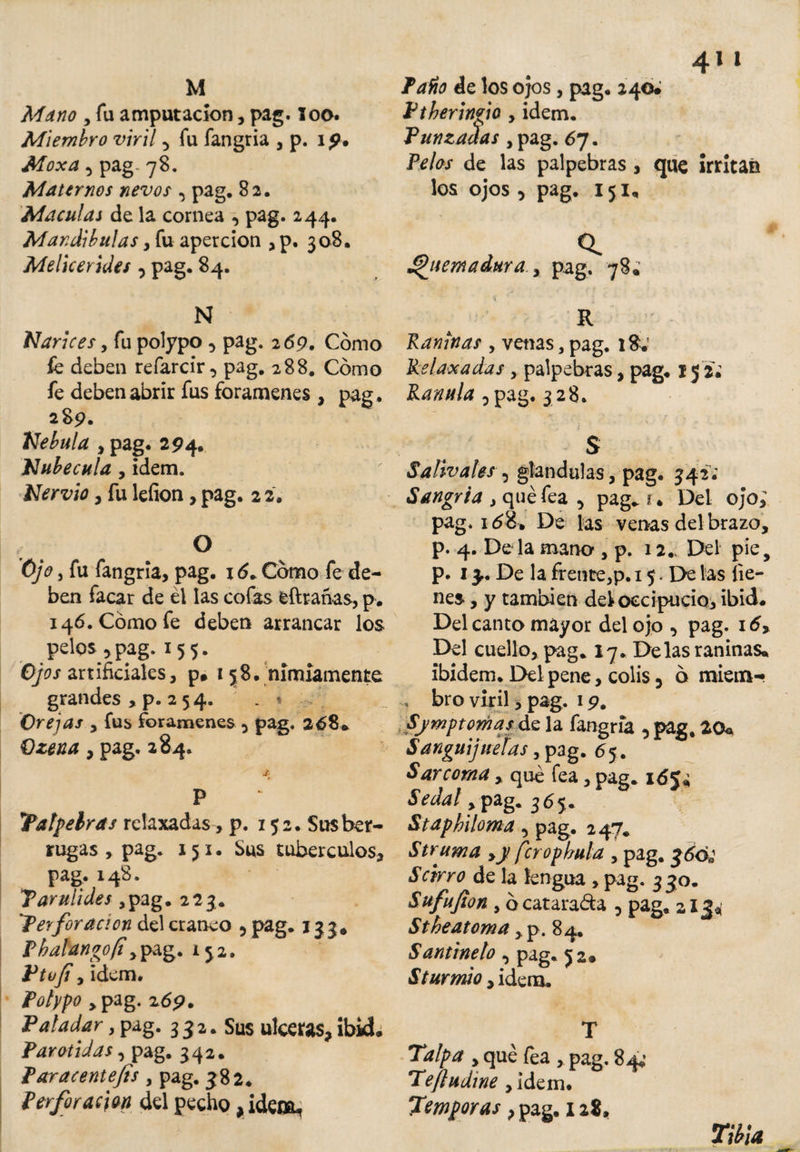 411
M
Mano , ſu amputacion, pag. 100.
Miembro viril, ſu ſangria , p. 19.
Moxa , pag. 78.
Maternos nevos , pag. 82.
Maculas de la cornea , pag. 244.
Mandibulas, ſu apercion , p. 308.
Melicerides , pag. 84.
N
Narices, ſu polypo , pag. 269. Còmo
ſe deben reſarcir, pag. 288. Còmo
ſe deben abrir ſus foramenes , pag.
289.
Nebula , pag. 294.
Nubecula , idem.
Nervio, ſu leſion, pag. 22.
O
Ojo, ſu ſangria, pag. 16. Còmo ſe de-
ben ſacar de èl las coſas eſtrañas, p.
146. Còmo ſe deben arrancar los
pelos , pag. 155.
Ojos artificiales, p. 158. nimiamente
grandes , p. 254.
Orejas , ſus foramenes , pag. 268.
Ozena , pag. 284.
P
Palpebras relaxadas, p. 152. Sus ber-
rugas , pag. 151. Sus tuberculos,
pag. 148.
Parulides , pag. 223.
Perforacion del craneo , pag. 133.
Phalangoſi, pag. 152.
Ptoſi, idem.
Polypo , pag. 269.
Paladar, pag. 332. Sus ulceras, ibid.
Parotidas, pag. 342.
Paracenteſis , pag. 382.
Perforacion del pecho , idem.
Paño de los ojos , pag. 240.
Ptheringio , idem.
Punzadas , pag. 67.
Pelos de las palpebras , que irritan
los ojos , pag. 151.
Q
Quemadura , pag. 78.
R
Raninas , venas, pag. 18.
Relaxadas , palpebras, pag. 152.
Ranula , pag. 328.
S
Salivales, glandulas, pag. 342.
Sangria , què ſea , pag. 1. Del ojo,
pag. 168. De las venas del brazo,
p. 4. De la mano , p. 12. Del pie,
p. 13. De la frente, p. 15. De las ſie-
nes , y tambien del occipucio, ibid.
Del canto mayor del ojo , pag. 16,
Del cuello, pag. 17. De las raninas.
ibidem. Del pene, colis, ò miem-
bro viril, pag. 19.
Symptomas de la ſangria , pag. 20.
Sanguijuelas, pag. 65.
Sarcoma, què ſea, pag. 165.
Sedal, pag. 365.
Staphiloma , pag. 247.
Struma , y ſcrophula , pag. 360.
Scirro de la lengua , pag. 330.
Sufuſion , ò cataracta , pag. 213.
Stheatoma , p. 84.
Santinelo , pag. 52.
Sturmio, idem.
T
Talpa , què ſea , pag. 84.
Teſtudine , idem.
Temporas , pag. 128.
Tibia